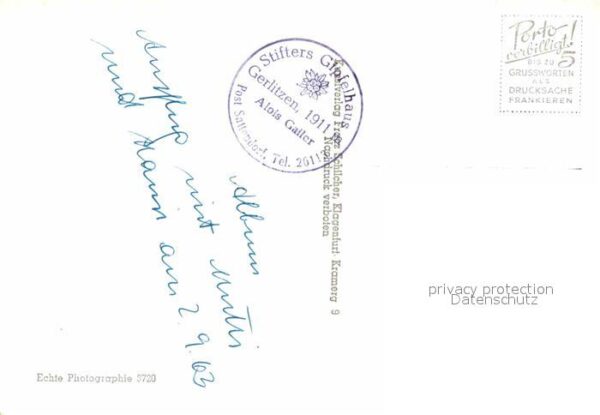 Stifters Gipfelhaus
Gerlitzen, 1911 m
Alois Galler
Post Sattendorf, Tel. 20112
Porto
verbilligt!
5
BIS ZU
GRUSSWORTEN
ALS
DRUCKSACHE
FRANKIEREN
Franz Schilcher, Klagenfurt, Kramerg 9
Nachdruck verboten
Album
Ausflug mit Mutti
und Hansi am 2.9.63
privacy protection
Datenschutz
Echte Photographie 3720